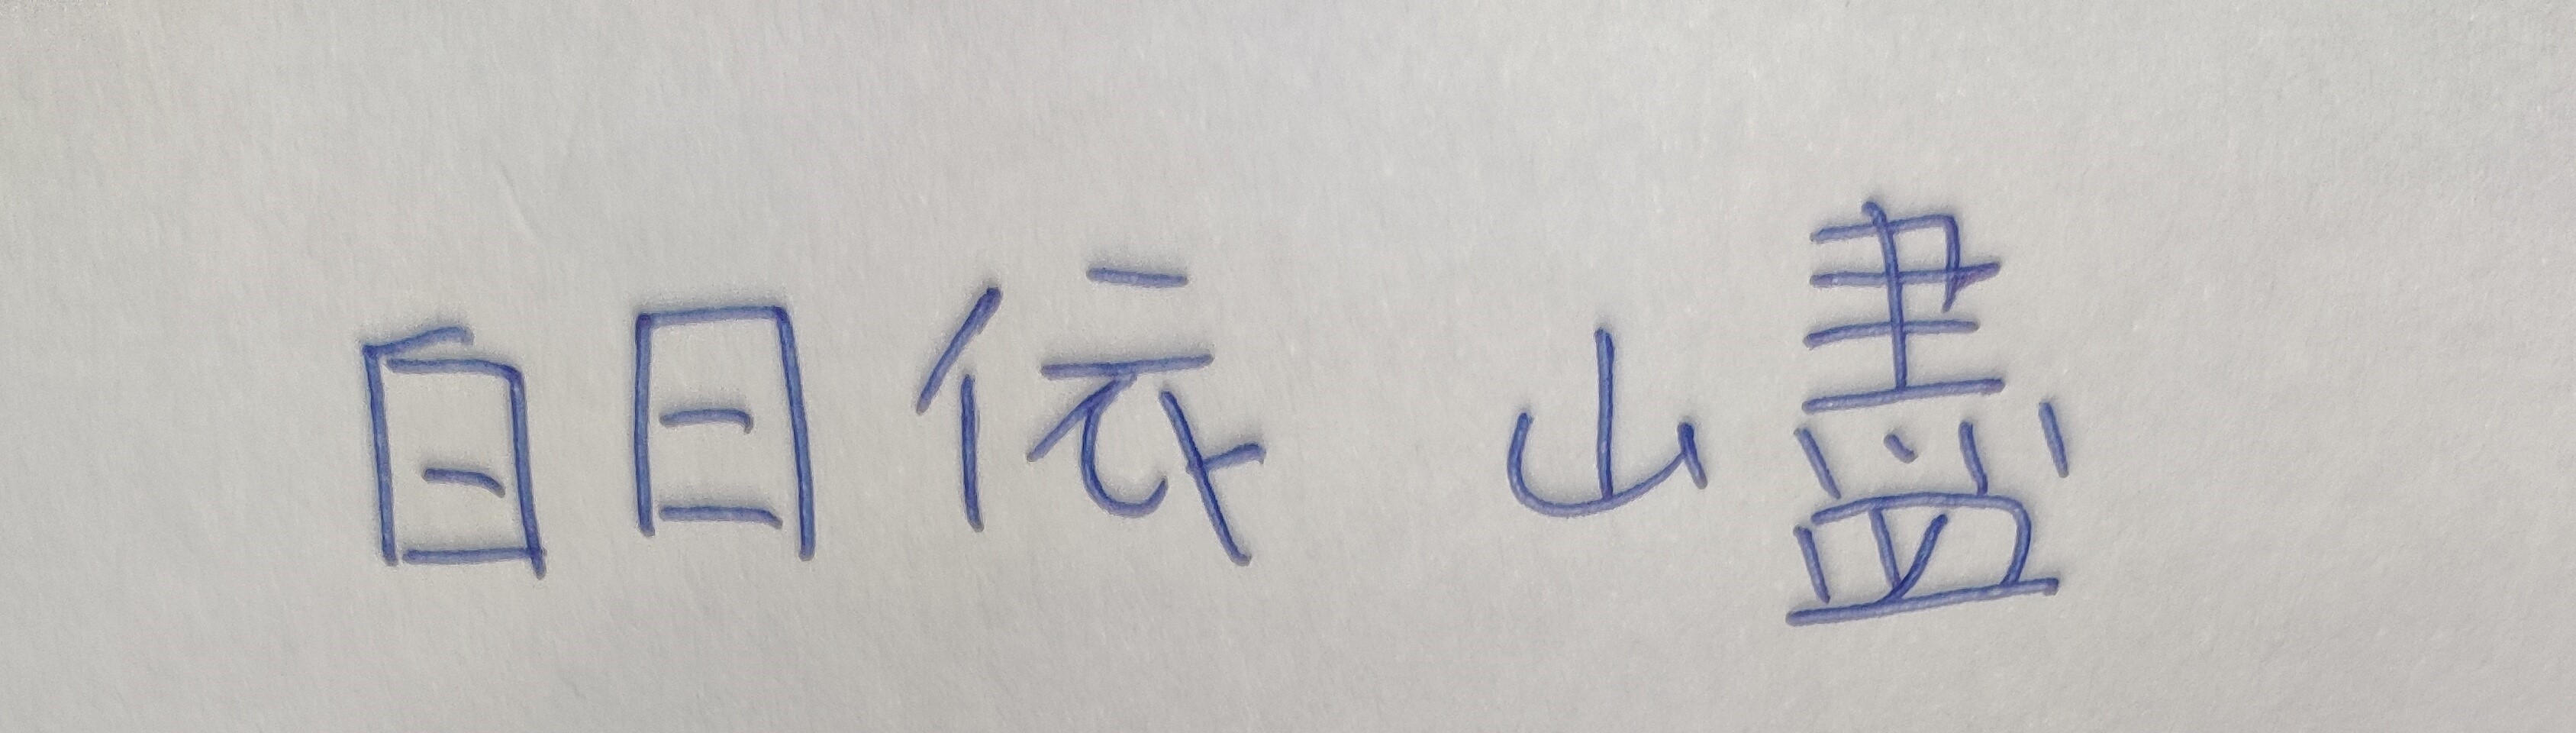 白日依 山盡